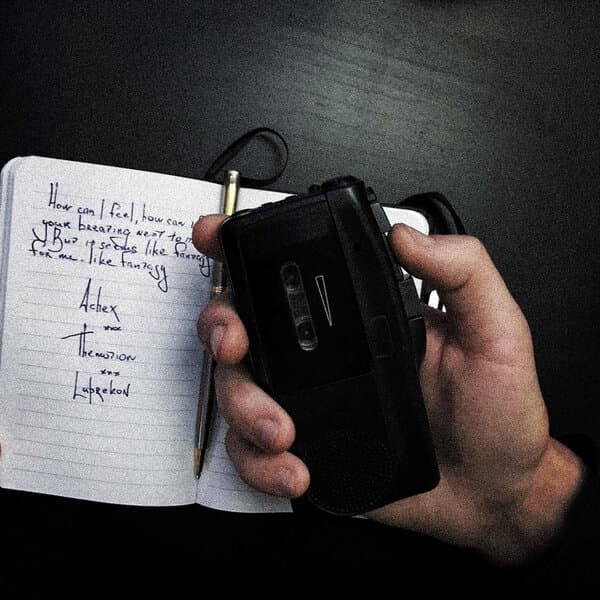 How can I feel, how can
your breazing next to
But it seems like fantazy
for me. like fantazy
Achex
xxx
Themotion
xxx
Luprekon